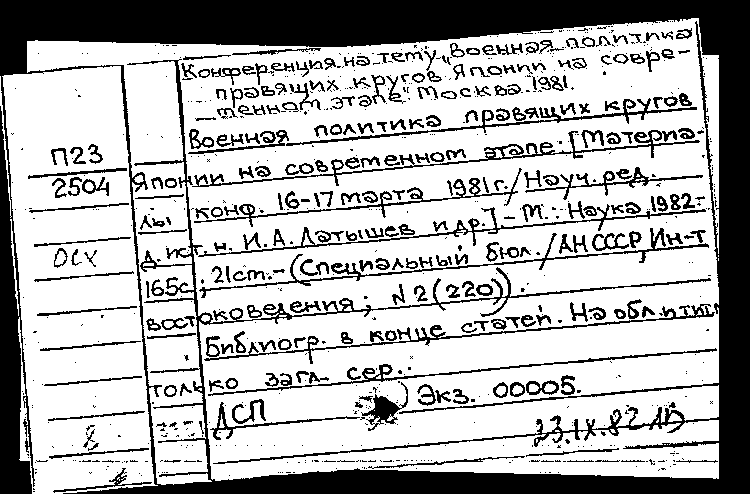 Конференция на тему „Военная политика
правящих кругов Японии на совре-
менном этапе". Москва. 1981.
П23
2504
Военная политика правящих кругов
Японии на современном этапе: [Материа-
лы конф. 16-17 марта 1981г./Науч. ред.
д. ист. н. И.А. Латышев и др.].- М.: Наука, 1982.-
165с.; 21см.- (Специальный бюл./АН СССР, Ин-т
востоковедения; N2(220)).
Библиогр. в конце статей. На обл. и тит.
только загл. сер..
ДСП Экз. 00005.
23.IX.82